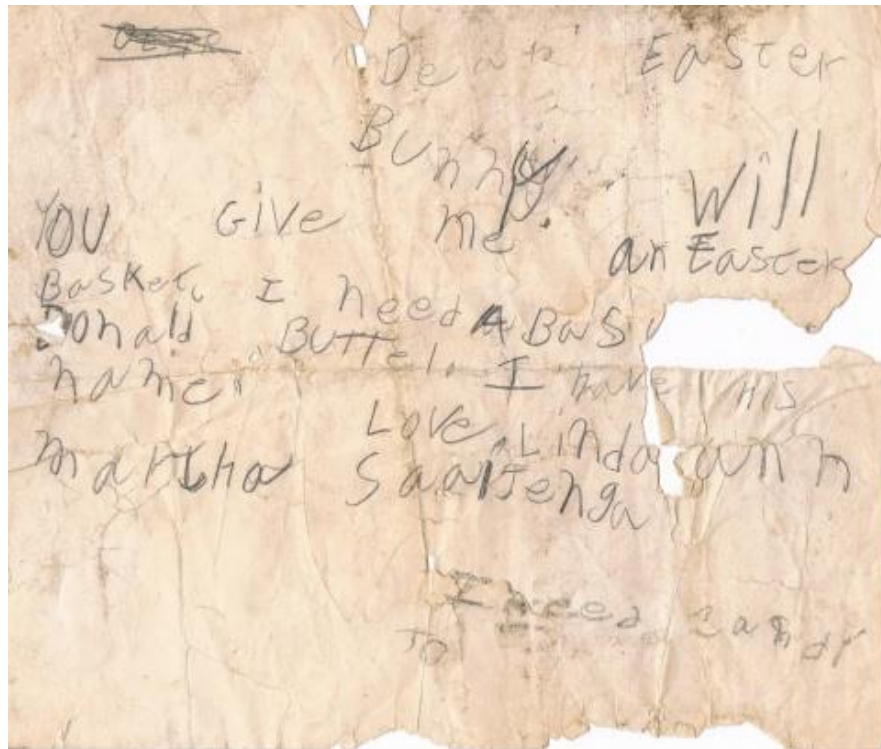 Dear Easter
Bunny. Will
YOU GIVE me an Easter
Basket. I need A Bas
Donald Buttel. I have HIS
name.
Love, Linda ann
Martha Saaltenga
I need candy
TO